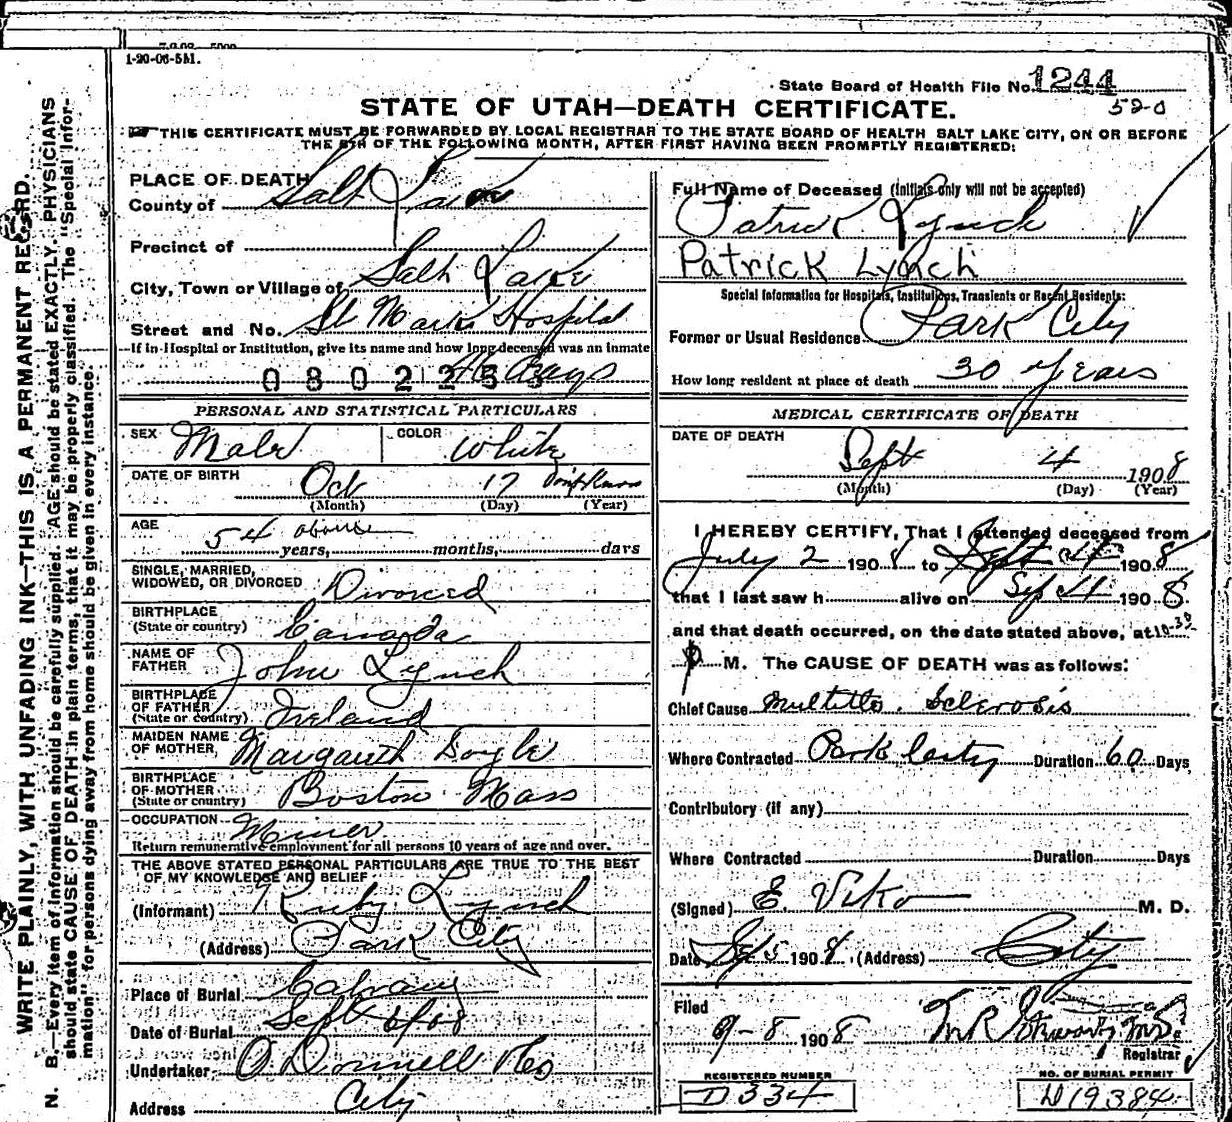 1-20-06-5M.
State Board of Health File No. 1244
52-0
STATE OF UTAH—DEATH CERTIFICATE.
THIS CERTIFICATE MUST BE FORWARDED BY LOCAL REGISTRAR TO THE STATE BOARD OF HEALTH SALT LAKE CITY, ON OR BEFORE
THE 5TH OF THE FOLLOWING MONTH, AFTER FIRST HAVING BEEN PROMPTLY REGISTERED:
WRITE PLAINLY, WITH UNFADING INK—THIS IS A PERMANENT RECORD.
N. B.—Every item of information should be carefully supplied. AGE should be stated EXACTLY. PHYSICIANS
should state CAUSE OF DEATH in plain terms, that it may be properly classified. The "Special Infor-
mation" for persons dying away from home should be given in every instance.
PLACE OF DEATH
County of Salt Lake
Precinct of
City, Town or Village of Salt Lake
Street and No. St Marks Hospital
If in Hospital or Institution, give its name and how long deceased was an inmate
days
PERSONAL AND STATISTICAL PARTICULARS
SEX Male COLOR White
DATE OF BIRTH Oct 17 Don't Know
(Month) (Day) (Year)
AGE 54 about years, months, days
SINGLE, MARRIED,
WIDOWED, OR DIVORCED Divorced
BIRTHPLACE
(State or country) Canada
NAME OF
FATHER John Lynch
BIRTHPLACE
OF FATHER
(State or country) Ireland
MAIDEN NAME
OF MOTHER Margaret Doyle
BIRTHPLACE
OF MOTHER
(State or country) Boston Mass
OCCUPATION Miner
Return remunerative employment for all persons 10 years of age and over.
THE ABOVE STATED PERSONAL PARTICULARS ARE TRUE TO THE BEST
OF MY KNOWLEDGE AND BELIEF
(Informant) Ruby Lynch
(Address) Park City
Place of Burial Calvary
Date of Burial Sept 6/08
Undertaker O'Donnell
Address City
Full Name of Deceased (Initials only will not be accepted)
Patrick Lynch
Patrick Lynch
Special Information for Hospitals, Institutions, Transients or Recent Residents:
Former or Usual Residence Park City
How long resident at place of death 30 years
MEDICAL CERTIFICATE OF DEATH
DATE OF DEATH
Sept 4 1908
(Month) (Day) (Year)
I HEREBY CERTIFY, That I attended deceased from
July 2 1908 to Sept 4 1908
that I last saw h alive on Sep 4 1908
and that death occurred, on the date stated above, at 10-30
P M. The CAUSE OF DEATH was as follows:
Chief Cause Multiple Sclerosis
Where Contracted Park City Duration 60 Days
Contributory (if any)
Where Contracted Duration Days
(Signed) E. Viko M. D.
Date Sep 5 1908 (Address) City
Filed
9-8-1908
Registrar
REGISTERED NUMBER
D 334
NO. OF BURIAL PERMIT
D 19384